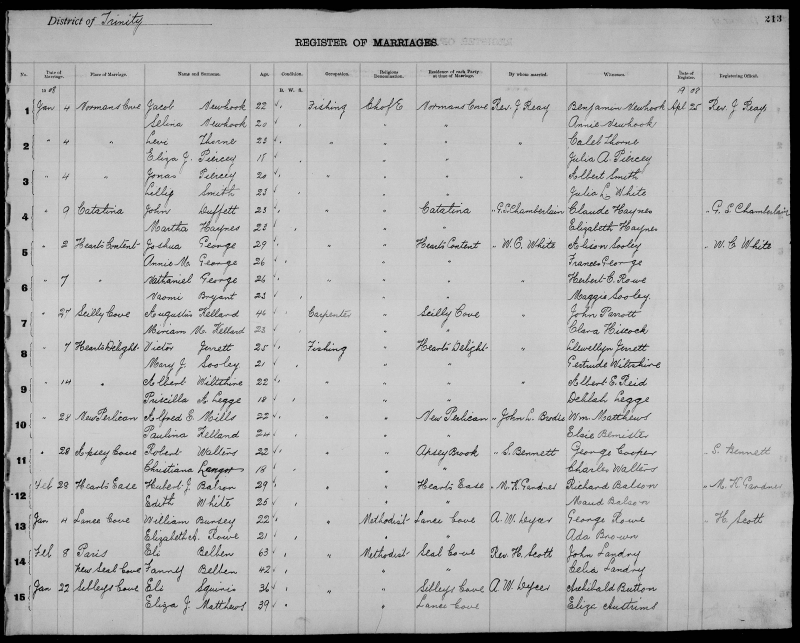 District of Trinity
213
REGISTER OF MARRIAGES
No. Date of Marriage. Place of Marriage. Name and Surname. Age. Condition. Occupation. Religious Denomination. Residence of each Party at time of Marriage. By whom married. Witnesses. Date of Register. Registering Official.
1908 B. W. S. 1908
1 Jan 4 Normans Cove Jacob Newhook 22 Fishing Ch of E Normans Cove Rev. J Reay Benjamin Newhook Apl 25 Rev. J Reay
Selina Newhook 20 " " Annie Newhook
2 " 4 " Levi Thorne 23 " " " " Caleb Thorne
Eliza J. Piercey 18 " " Julia A Piercey
3 " 4 " Jonas Piercey 20 " " " " Albert Smith
Lillie Smith 23 " " Julia L White
4 " 9 Catalina John Duffett 23 " " Catalina " G.S. Chamberlain Claude Haynes " G. S Chamberlain
Martha Haynes 23 " " Elizabeth Haynes
5 " 2 Hearts Content Joshua George 29 " " Hearts Content " W. C. White Alison Sooley " W. C White
Annie M. George 26 " " Frances George
6 " 7 " Nathaniel George 26 " " " " Herbert C. Rowe
Naomi Bryant 23 " " Maggie Sooley
7 " 27 Scilly Cove Augustus Kelland 44 Carpenter " Scilly Cove " John Parrott
Miriam Kelland 23 " " Clara Hiscock
8 " 7 Hearts Delight Victor Jerrett 25 Fishing " Hearts Delight " Llewellyn Jerrett
Mary J. Sooley 21 " " Gertrude Wiltshire
9 " 14 " Albert Wiltshire 22 " " " " Albert E. Reid
Priscilla A Legge 18 " " Delilah Legge
10 " 28 New Perlican Alfred E. Mills 22 " " New Perlican " John L. Wm. Matthews
Paulina Kelland 20 " " Elsie Bemister
11 " 28 Apsey Cove Robert Walters 22 " " Apsey Brook " S. Bennett George Cooper " S. Bennett
Christiana Langor 18 " " Charles Walters
12 Feb 28 Hearts Ease Hubert J Balson 29 " " Hearts Ease " M. K Gardner Richard Balson " M. K Gardner
Edith White 25 " " Maud Balson
13 Jan 4 Lance Cove William Bursey 22 " Methodist Lance Cove A. W. George Rowe " H. Scott
Elizabeth A. Rowe 21 " " Ada Brown
14 Feb 8 Paris Eli Belben 63 " Methodist Seal Cove Rev. H. Scott John Landry
New Seal Cove Fanney Belben 42 " " Celia Landry
15 Jan 22 Sibleys Cove Eli Squires 36 " " Sibleys Cove A. W. Archibald Button
Eliza J Matthews 39 " Lance Cove Eliza